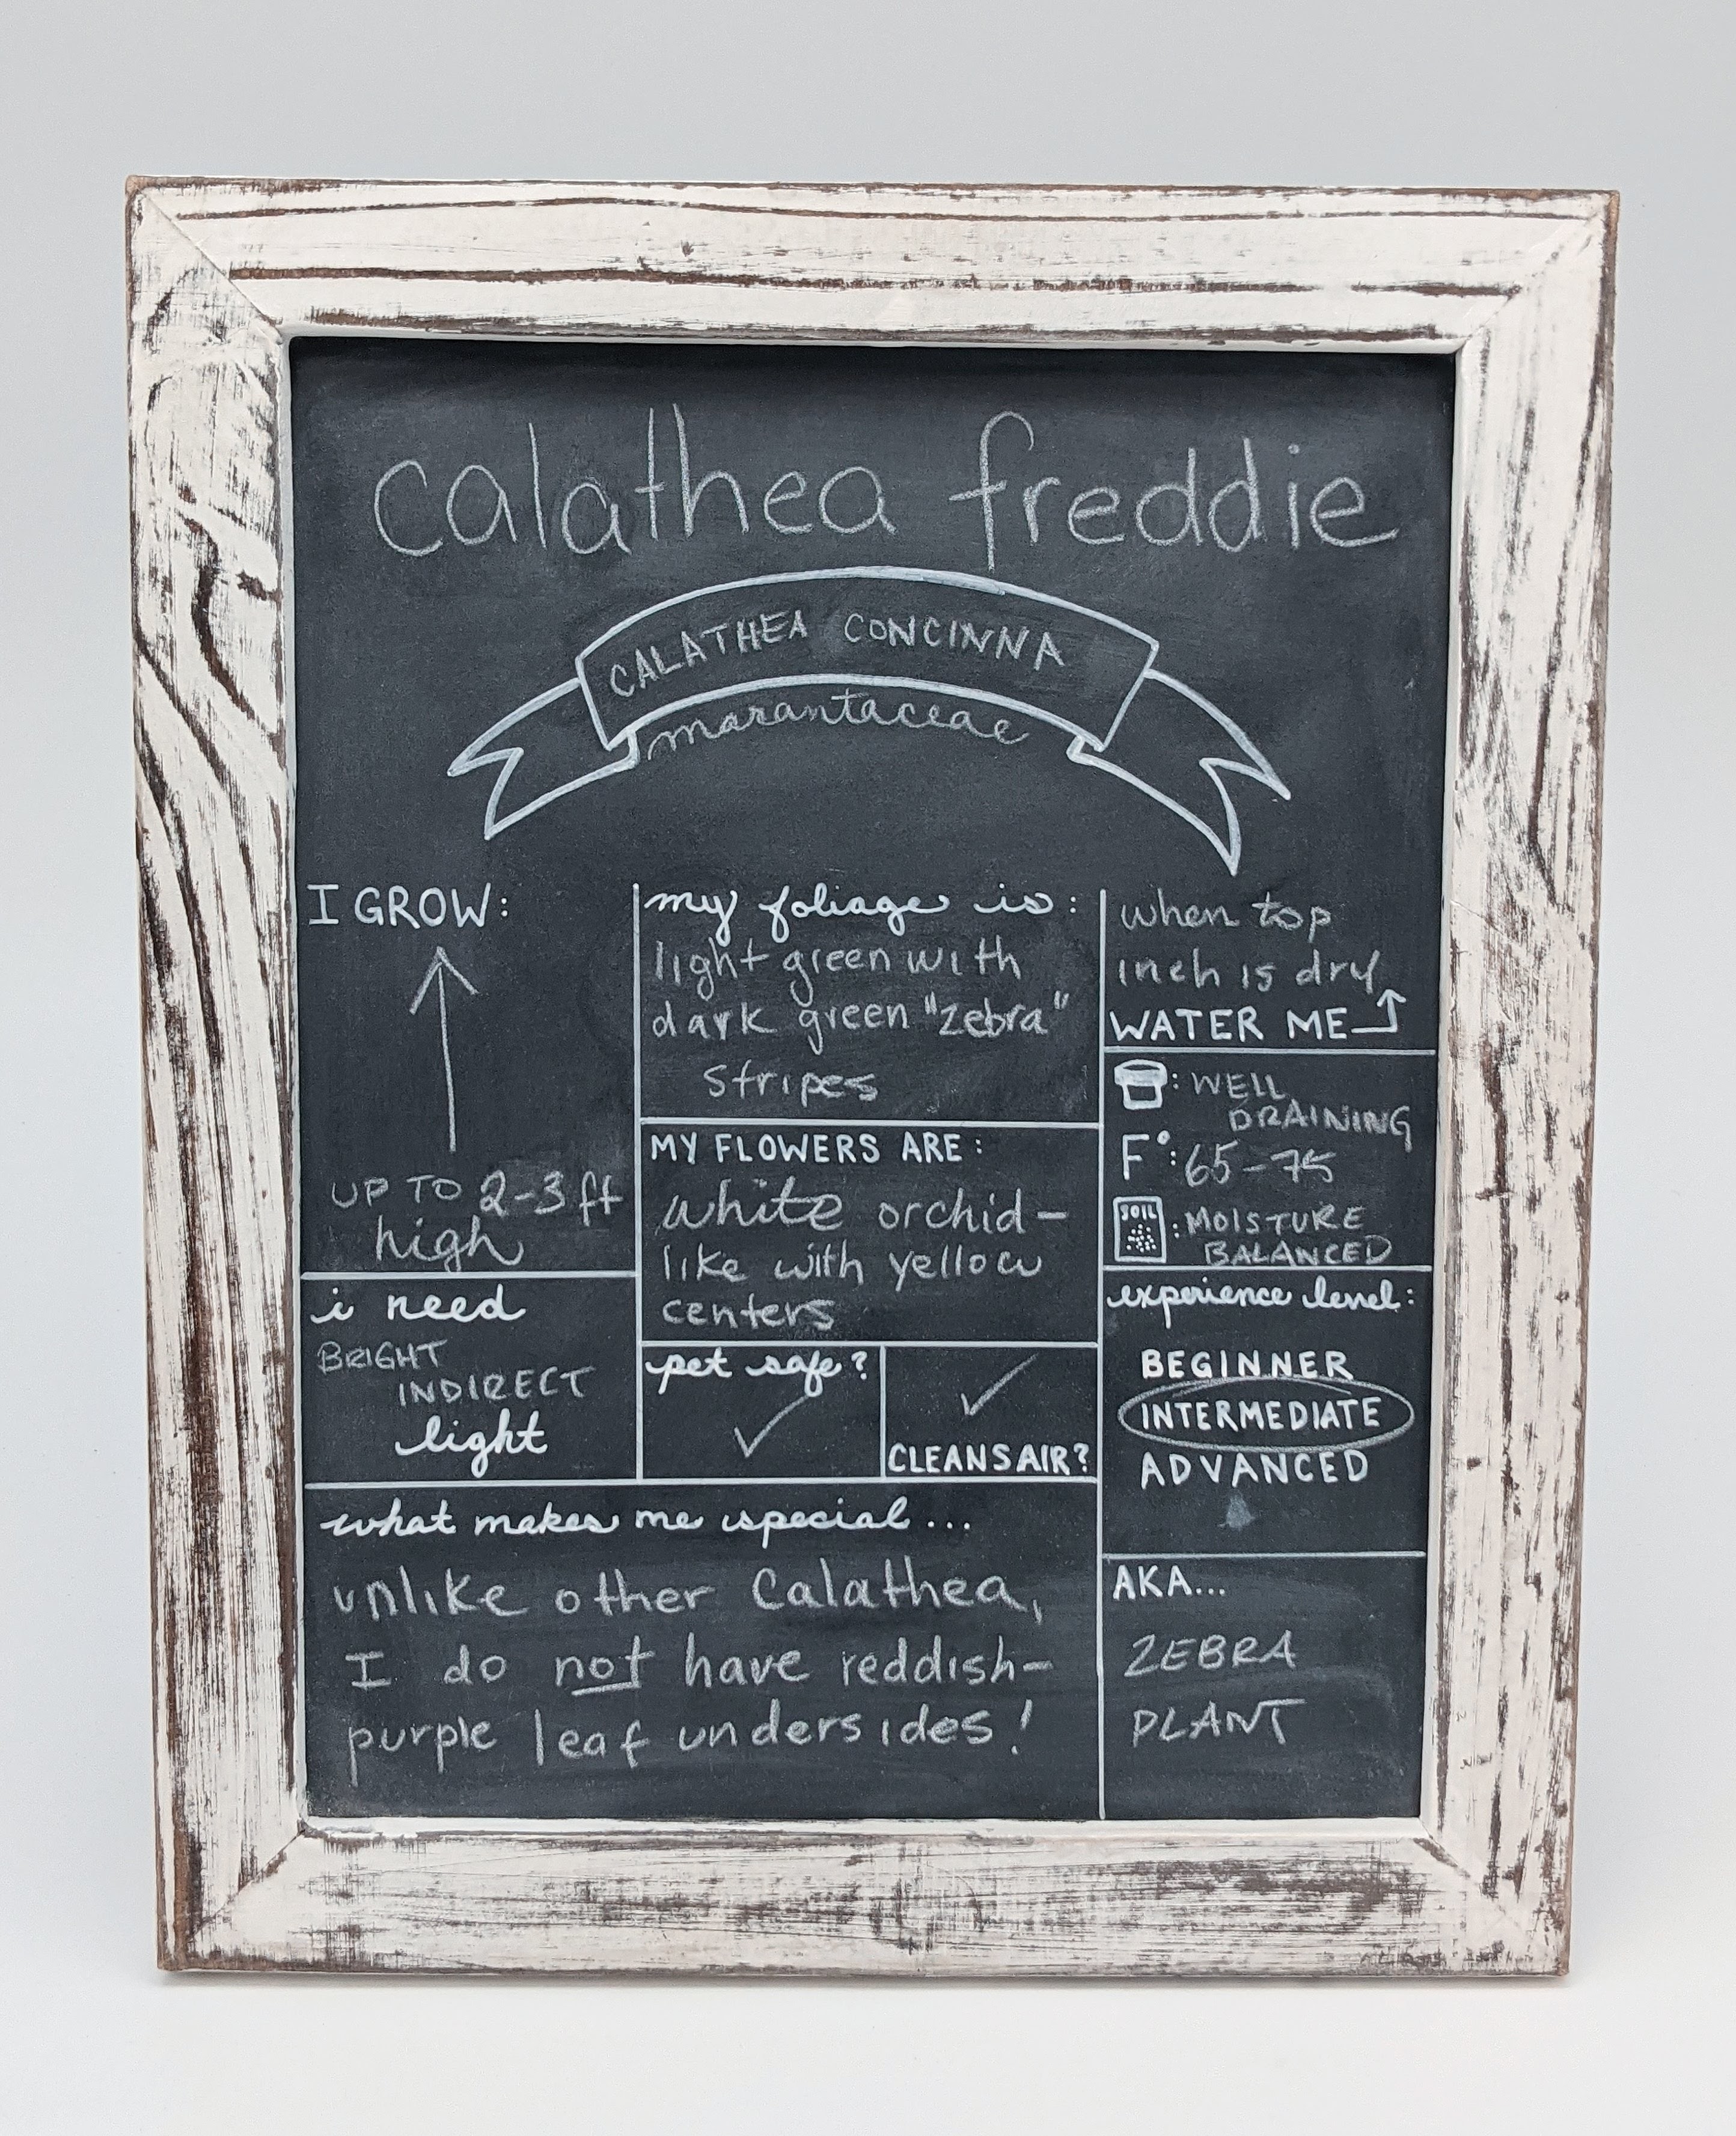 calathea freddie
CALATHEA CONCINNA
marantaceae
I GROW:
UP TO 2-3 ft
high
i need
BRIGHT
INDIRECT
light
my foliage is:
light green with
dark green "zebra"
stripes
MY FLOWERS ARE:
white orchid-
like with yellow
centers
pet safe?
✓
✓
CLEANS AIR?
when top
inch is dry
WATER ME
: WELL
DRAINING
F°: 65-75
SOIL : MOISTURE
BALANCED
experience level:
BEGINNER
INTERMEDIATE
ADVANCED
what makes me special...
unlike other Calathea,
I do not have reddish-
purple leaf undersides!
AKA...
ZEBRA
PLANT